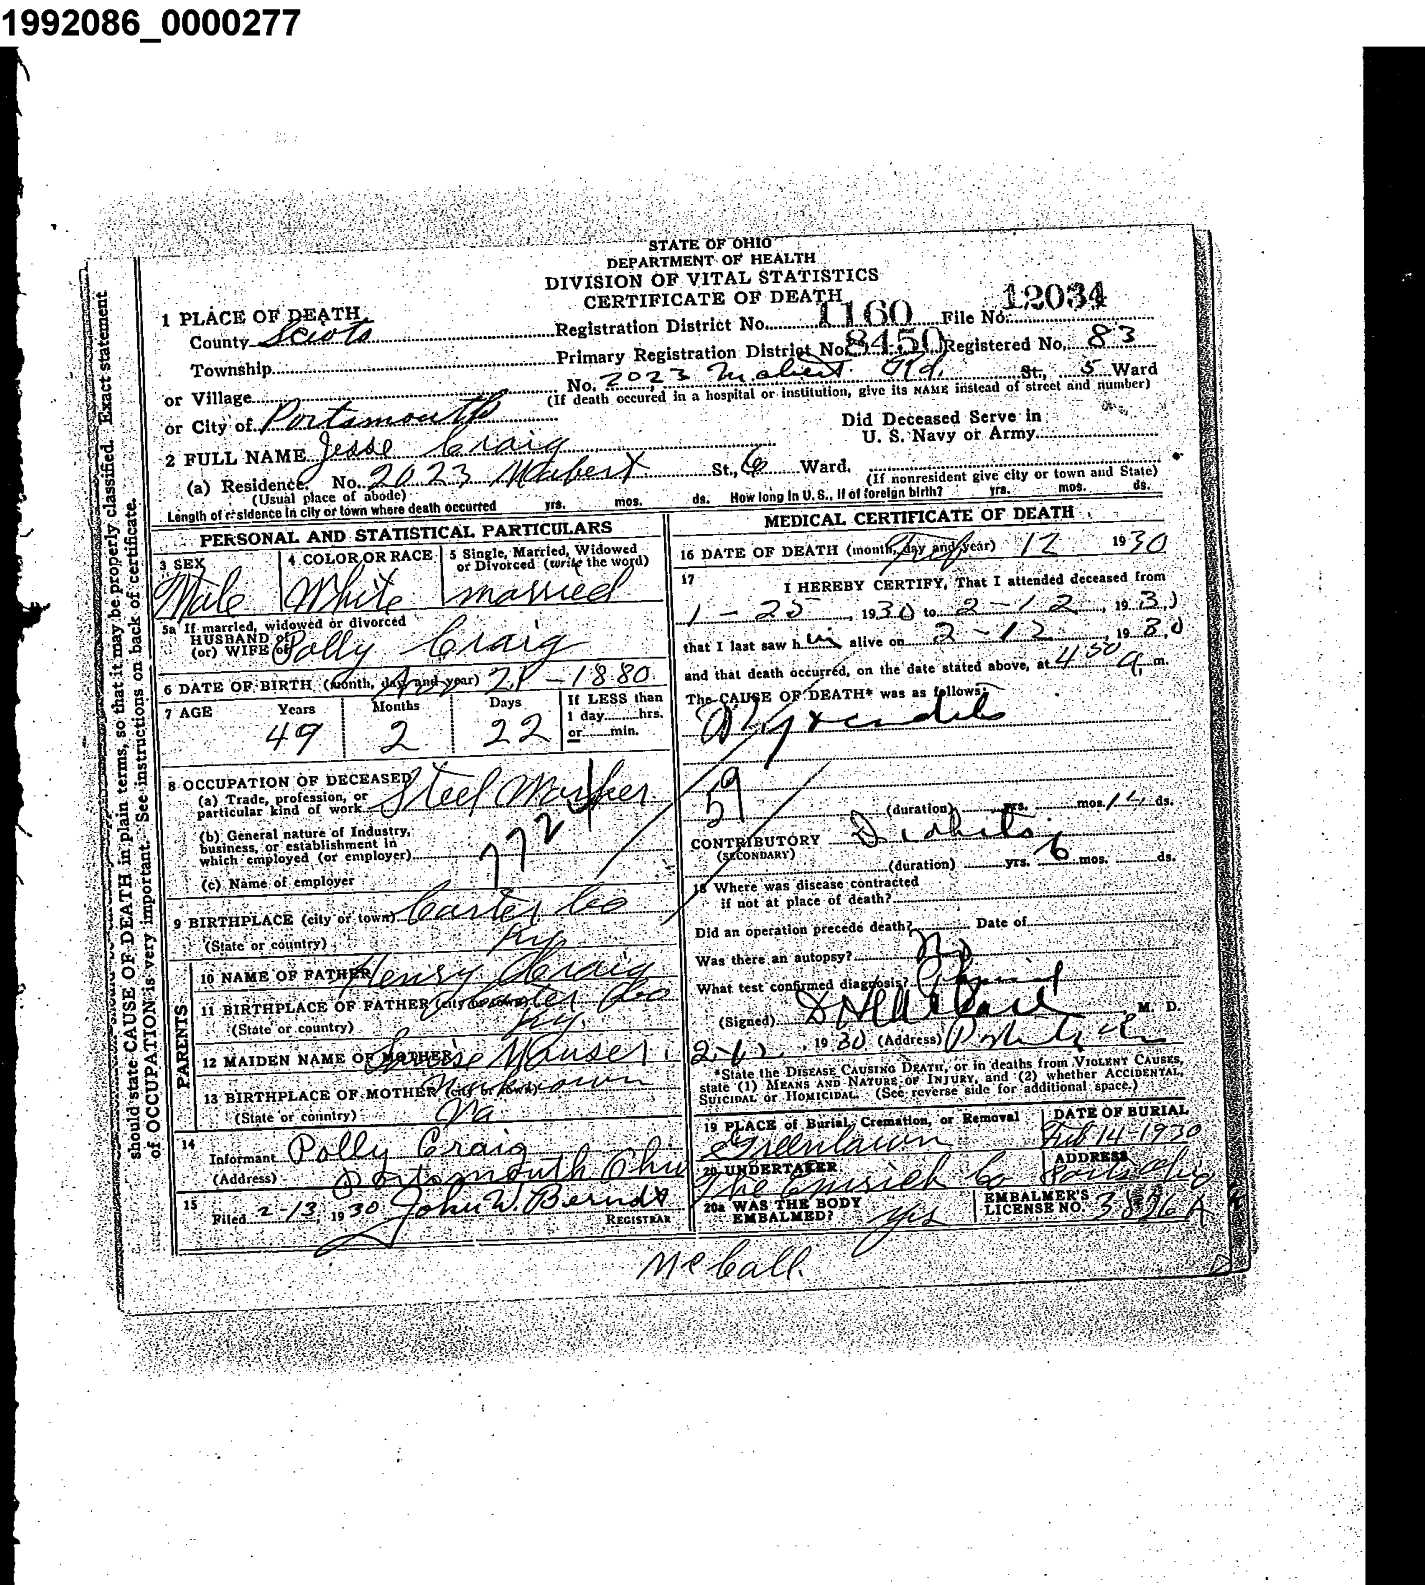 1992086_0000277
STATE OF OHIO
DEPARTMENT OF HEALTH
DIVISION OF VITAL STATISTICS
CERTIFICATE OF DEATH
1 PLACE OF DEATH
County Scioto Registration District No. 1160 File No. 12034
Township Primary Registration District No. 8450 Registered No. 83
or Village No. 2023 Mabert Rd. St., 5 Ward
(If death occured in a hospital or institution, give its NAME instead of street and number)
or City of Portsmouth Did Deceased Serve in
U. S. Navy or Army
2 FULL NAME Jesse Craig
(a) Residence. No. 2023 Maibert St., 6 Ward.
(Usual place of abode) (If nonresident give city or town and State)
Length of residence in city or town where death occurred yrs. mos. ds. How long in U. S., if of foreign birth? yrs. mos. ds.
PERSONAL AND STATISTICAL PARTICULARS
3 SEX 4 COLOR OR RACE 5 Single, Married, Widowed or Divorced (write the word)
Male White married
5a If married, widowed or divorced
HUSBAND of
(or) WIFE of Polly Craig
6 DATE OF BIRTH (month, day and year) 21 - 1880
7 AGE Years Months Days If LESS than
1 day hrs.
49 2 22 or min.
8 OCCUPATION OF DECEASED
(a) Trade, profession, or
particular kind of work Steel Worker
(b) General nature of Industry,
business, or establishment in
which employed (or employer) 772
(c) Name of employer
9 BIRTHPLACE (city or town) Carter Co
(State or country) Ky
PARENTS
10 NAME OF FATHER Henry Craig
11 BIRTHPLACE OF FATHER (city or town) Carter Co
(State or country) Ky.
12 MAIDEN NAME OF MOTHER
13 BIRTHPLACE OF MOTHER (city or town) Unknown
(State or country) Va
14
Informant Polly Craig
(Address) Portsmouth Ohio
15
Filed 2-13, 1930 John W. Berndt
REGISTRAR
MEDICAL CERTIFICATE OF DEATH
16 DATE OF DEATH (month, day and year) Feb 12 1930
17
I HEREBY CERTIFY, That I attended deceased from
1-25, 1930 to 2-12, 193
that I last saw him alive on 2-12, 1930
and that death occurred, on the date stated above, at 4 50 a. m.
The CAUSE OF DEATH* was as follows:
59
(duration) yrs. mos. 14 ds.
CONTRIBUTORY Diabetis
(SECONDARY)
(duration) yrs. 6 mos. ds.
18 Where was disease contracted
if not at place of death?
Did an operation precede death? Date of
Was there an autopsy? No
What test confirmed diagnosis?
(Signed) M. D.
2-12, 1930 (Address)
*State the DISEASE CAUSING DEATH, or in deaths from VIOLENT CAUSES,
state (1) MEANS AND NATURE OF INJURY, and (2) whether ACCIDENTAL,
SUICIDAL or HOMICIDAL. (See reverse side for additional space.)
19 PLACE of Burial, Cremation, or Removal DATE OF BURIAL
Greenlawn Feb 14-1930
20 UNDERTAKER ADDRESS
The Emrick Co Ports Ohio
20a WAS THE BODY
EMBALMED? yes
EMBALMER'S
LICENSE NO. 3826 A
McCall.
should state CAUSE OF DEATH in plain terms, so that it may be properly classified. Exact statement
of OCCUPATION is very important. See instructions on back of certificate.